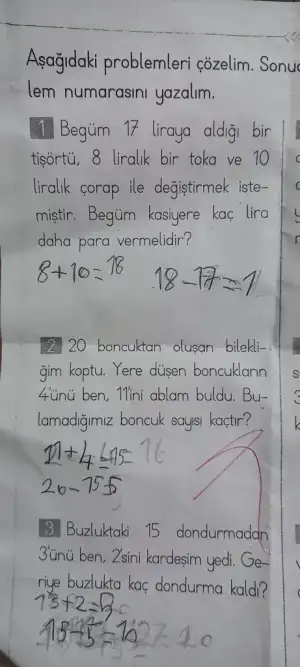 Aşağıdaki problemleri çözelim. Sonuç
lem numarasını yazalım.
1 Begüm 17 liraya aldığı bir
tişörtü, 8 liralık bir toka ve 10
liralık çorap ile değiştirmek iste-
miştir. Begüm kasiyere kaç lira
daha para vermelidir?
8+10=18 18-17=1
2 20 boncuktan oluşan bilekli-
ğim koptu. Yere düşen boncukların
4'ünü ben, 11'ini ablam buldu. Bu-
lamadığımız boncuk sayısı kaçtır?
11+4=15 16
20-15=5
3 Buzluktaki 15 dondurmadan
3'ünü ben, 2'sini kardeşim yedi. Ge-
riye buzlukta kaç dondurma kaldı?
3+2=5
15-5=10